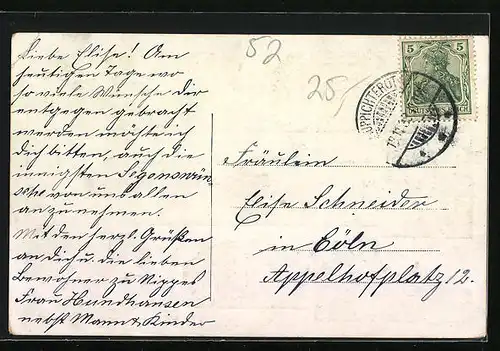 Liebe Elise! Am
heutigen Tage wo
so viele Wünsche dir
entgegen gebracht
werden möchte ich
dich bitten, auch die
innigsten Segenswün-
sche von uns allen
anzunehmen.
Mit den herzl. Grüßen
an dich u. die lieben
Bewohner zu Nippes
Frau Hundhausen
nebst Mann & Kinder
52
25,-
5 5
Fräulein
Elise Schneider
in Cöln
Appelhofplatz 12.